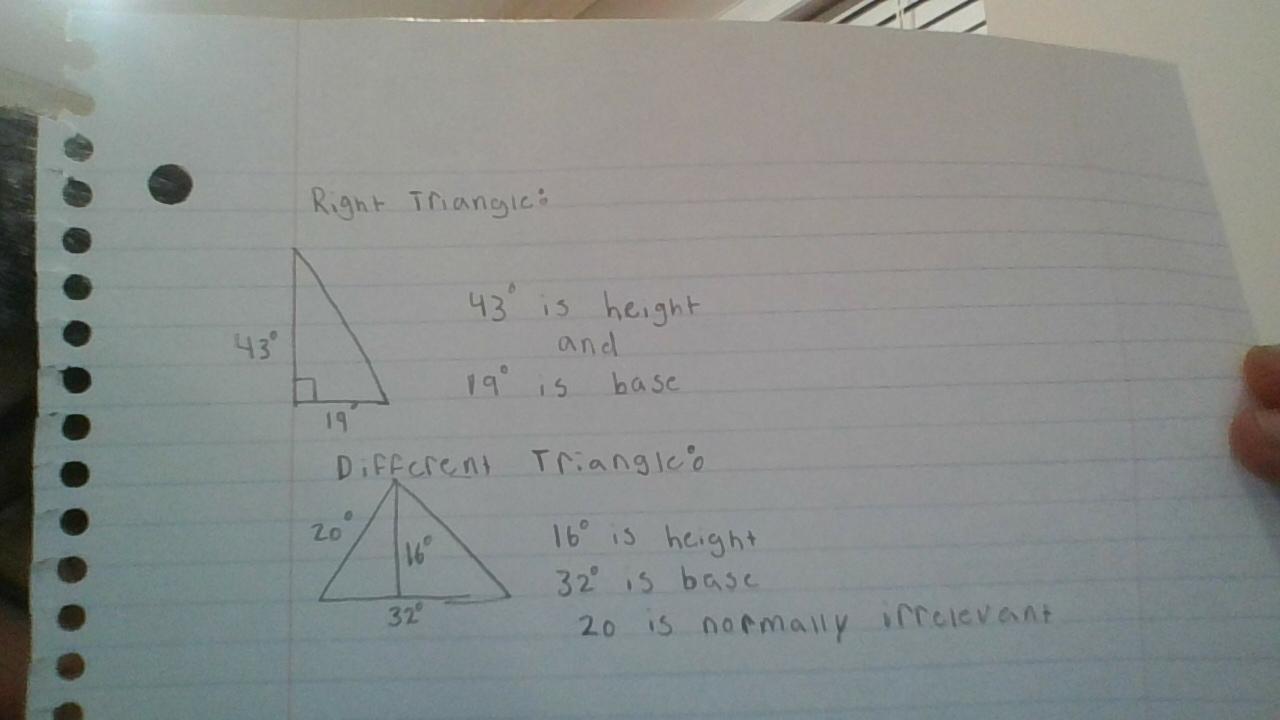 Right Triangle:
43° is height
43°
and
19° is base
19°
Different Triangle:
20°
16°
16° is height
32° is base
32°
20 is normally irrelevant